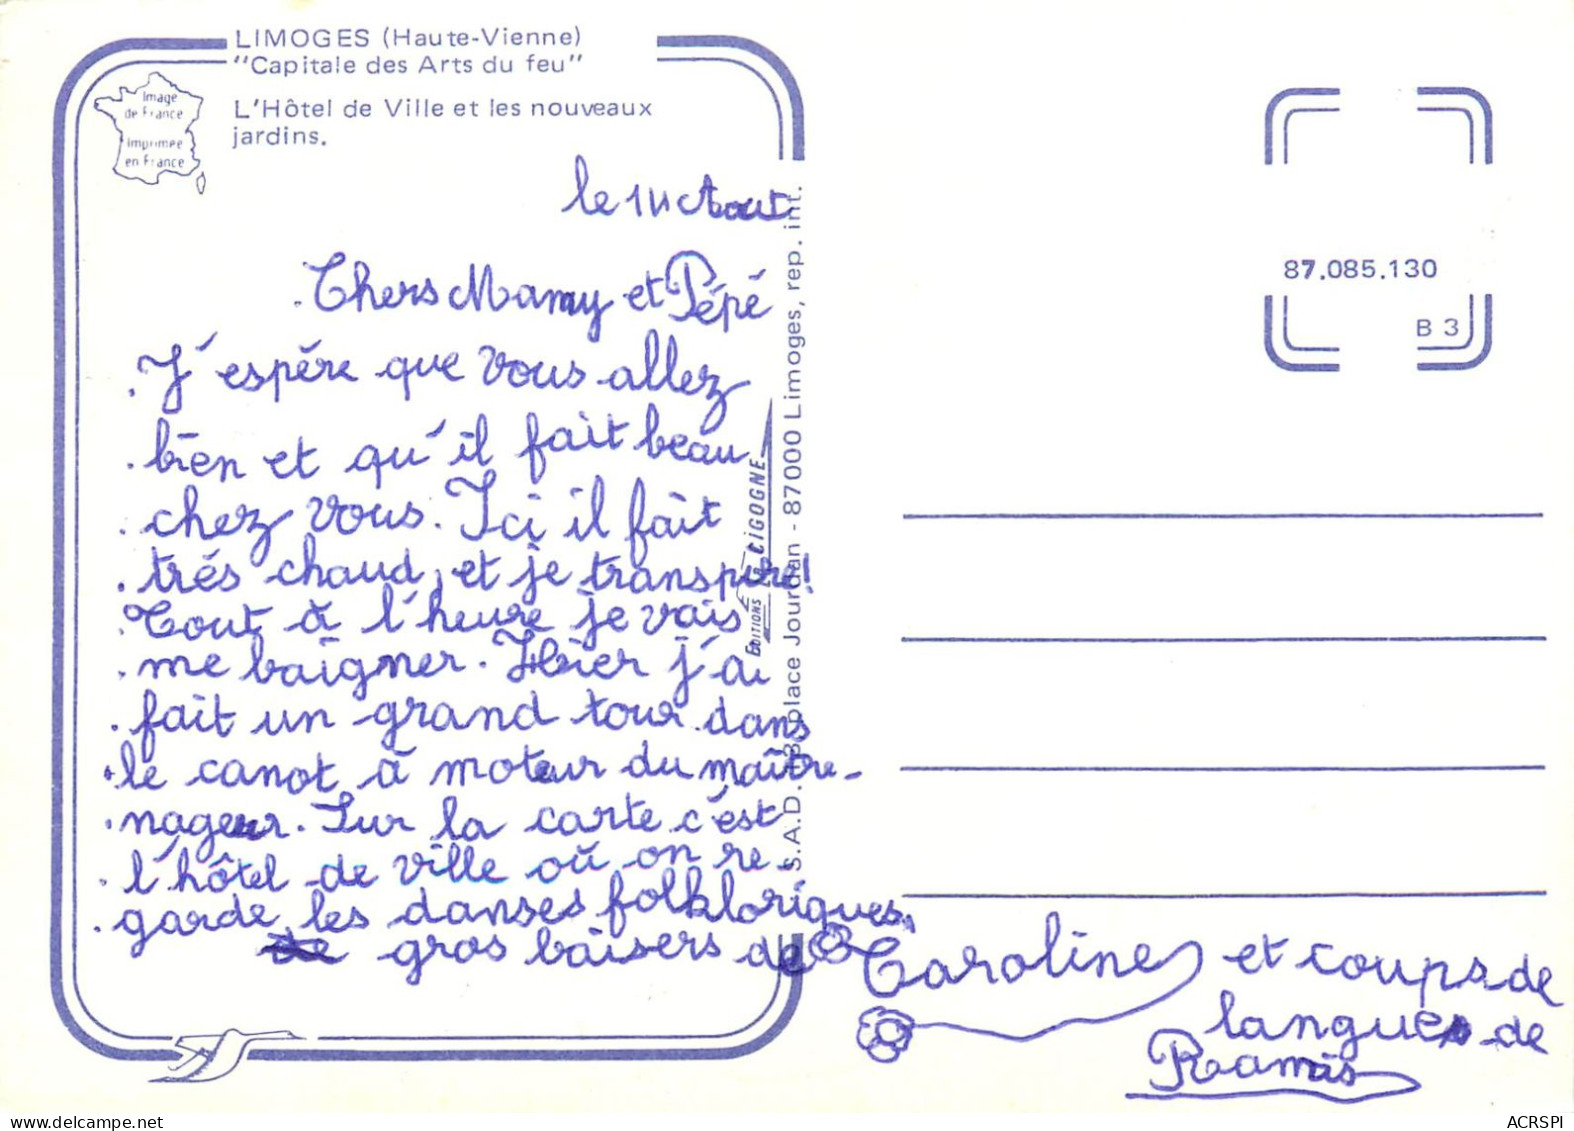 LIMOGES (Haute-Vienne)
"Capitale des Arts du feu"
L'Hôtel de Ville et les nouveaux
jardins.
Image
de France
imprimée
en France
le 14 Aout
Chers Mamy et Pépé
J'espére que vous allez
bien et qu'il fait beau
chez vous. Ici il fait
trés chaud, et je transpire!
Tout à l'heure je vais
me baigner. Hier j'ai
fait un grand tour dans
le canot à moteur du maître-
nageur. Sur la carte c'est
l'hôtel de ville où on re-
garde les danses folkloriques.
gros baisers de Caroline et coups de
langues de
Ramsis
EDITIONS LA CIGOGNE
S.A.D. 3 place Jourdan - 87000 Limoges, rep. int.
87.085.130
B 3
ACRSPI